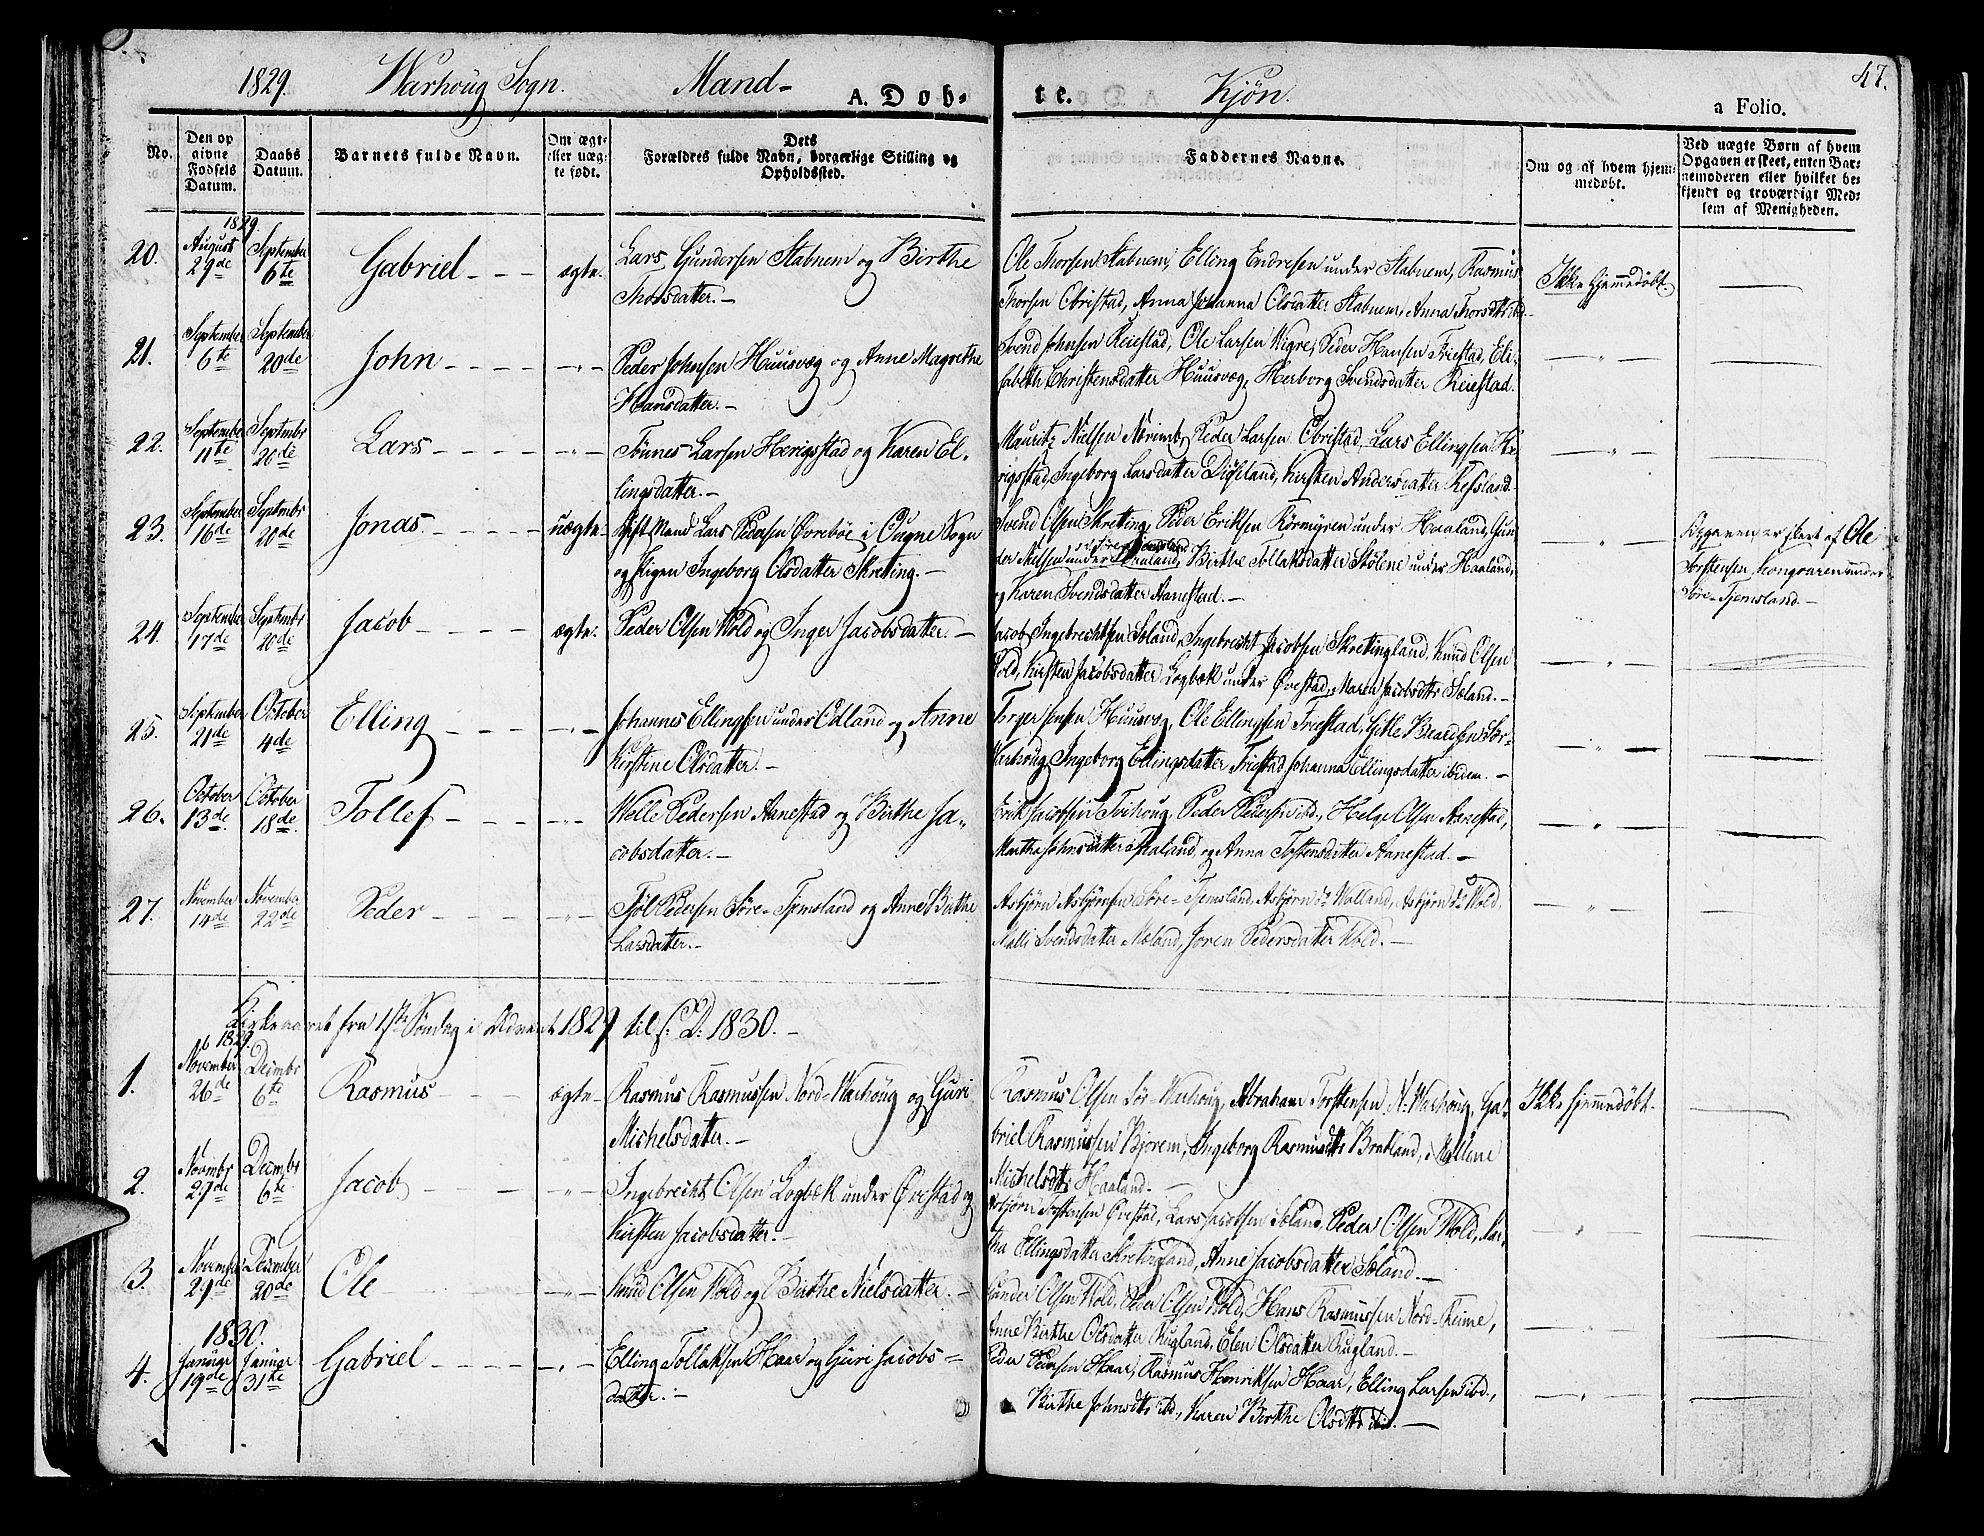 1829. Warhoug Sogn. Mand- A. Dob- te. Kjøn. 47.
a Folio.
No.
Den op
givne
Fødsels
Datum.
Daabs
Datum.
Barnets fulde Navn.
Om ægte
eller uæg-
te født.
Dets
Forældres fulde Navn, borgerlige Stilling og
Opholdssted.
Faddernes Navne.
Om og af hvem hjem-
medøbt.
Ved uægte Børn af hvem
Opgaven er skeet, enten Bar-
nemoderen eller hvilket be-
kjendt og troværdigt Med-
lem af Menigheden.
1829
20. August 29de September 6te Gabriel ægte. Lars Gundersen Stabnem og Birthe
Thorsdatter.
Ole Thorsen Stabnem, Elling Endresen under Stabnem, Rasmus
Thorsen Obristad, Anna Johanna Olsdatter Stabnem, Anna Thorsdtr ibd.
Ikke hjemmedøbt.
21. September 6te September 20de John -"- Peder Johnsen Huusvæg og Anne Magrethe
Hansdatter.
Svend Johnsen Reiestad, Ole Larsen Wigre, Peder Hansen Friestad, Eli-
sabeth Christensdatter Huusvæg, Herborg Svendsdatter Reiestad.
22. September 11te Septembr 20de Lars -"- Tönnes Larsen Herigstad og Karen El-
lingsdatter.
Mauritz Nielsen Nærim, Peder Larsen Obristad, Lars Ellingsen He-
rigstad, Ingeborg Larsdatter Diseland, Kirsten Andersdatter Refsland
23. September 16de Septembr 20de Jonas. uægte. Gift Mand Lars Pedersen Øvrebøe i Ougne Sogn
og Pigen Ingeborg Olsdatter Skreting.
Svend Olsen Skreting, Peder Eriksen Rörmyren under Haaland, Gun-
der Nielsen under Haaland, Birthe Tollaksdatter Stølene under Haaland,
og Karen Svendsdatter Aanestad.
Opgaven er skeet af Ole
Torstensen Kongvaren under
Søre-Tjemsland.
24. September 17de Septembr 20de Jacob ægte. Peder Olsen Wold og Inger Jacobsdatter.
Jacob Ingebrechtsen Søland, Ingebrecht Jacobsen Skretingland, Knud Olsen
Wold, Kirsten Jacobsdatter Logbæk under Øvestad, Maren Jacobsdtr Søland.
25. September 21de October 4de Elling -"- Johannes Ellingsen under Odland og Anne
Kirstine Olsdatter.
Torger Jensen Huusvæg, Ole Ellingsen Friestad, Gitle Baardsen Sør-
Warhoug, Ingeborg Ellingsdatter Friestad, Johanna Ellingsdatter ibidem.
26. October 13de October 18de Tollef -"- Welle Pedersen Aanestad og Birthe Ja-
cobsdatter.
Erik Jacobsen Tvihoug, Peder Pedersen ibd., Helge Olsen Aanestad,
Martha Johnsdatter Haaland, og Anna Tostensdatter Aanestad.
27. November 14de November 22de Peder -"- Tjöl Pedersen Söre-Tjemsland og Anne Birthe
Larsdatter.
Asbjørn Asbjørnsen Søre-Tjemsland, Asbjørn do Wolland, Asbjørn do Wold,
Malli Svendsdatter Mæland, Joren Pedersdatter Wold.
Kirkeaaret fra 1ste Søndag i Advent 1829 til s: D: 1830.
1829.
1. November 26de Decmbr 6te Rasmus ægte Rasmus Rasmussen Nord-Warhoug og Guri
Michelsdatter.
Rasmus Olsen Sör-Warhoug, Abraham Torstensen N. Warhoug, Ga-
briel Rasmussen Bjorem, Ingeborg Rasmusdtr Bratland, Mallene
Michelsdtr Haaland.
Ikke hjemmedøbt.
2. Novmbr 27de Decmbr 6te Jacob -"- Ingebrecht Olsen Logbæk under Øvestad og
Kirsten Jacobsdatter.
Asbjørn Tostensen Øvestad, Lars Jacobsen Søland, Peder Olsen Wold, Mar-
tha Ellingsdatter Skretingland, Anne Jacobsdatter Søland.
3. November 29de December 20de Ole -"- Knud Olsen Wold og Birthe Nielsdatter.
Gunder Olsen Wold, Peder Olsen Wold, Hans Rasmussen Nord-Reime,
Anne Birthe Olsdatter Rugland, Elen Olsdatter Rugland.
1830.
4. Januar 19de Januar 31te Gabriel -"- Elling Tollaksen Haar og Guri Jacobs-
datter.
Peder Pedersen Haar, Rasmus Henriksen Haar, Elling Larsen ibd.,
Birthe Johnsdtr ibd., Karen Birthe Olsdtr ibd.